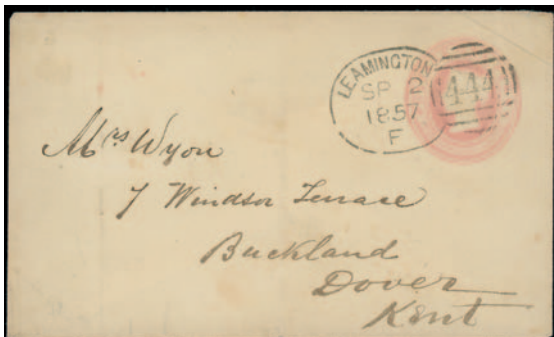 LEAMINGTON
SP 2
1857
F
444
Mrs Wyon
7 Windsor Terrace
Buckland
Dover
Kent